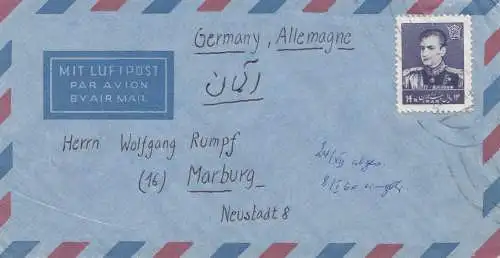 Germany, Allemagne
آلمان
MIT LUFTPOST
PAR AVION
BY AIR MAIL
Herrn Wolfgang Rumpf
(16) Marburg
Neustadt 8